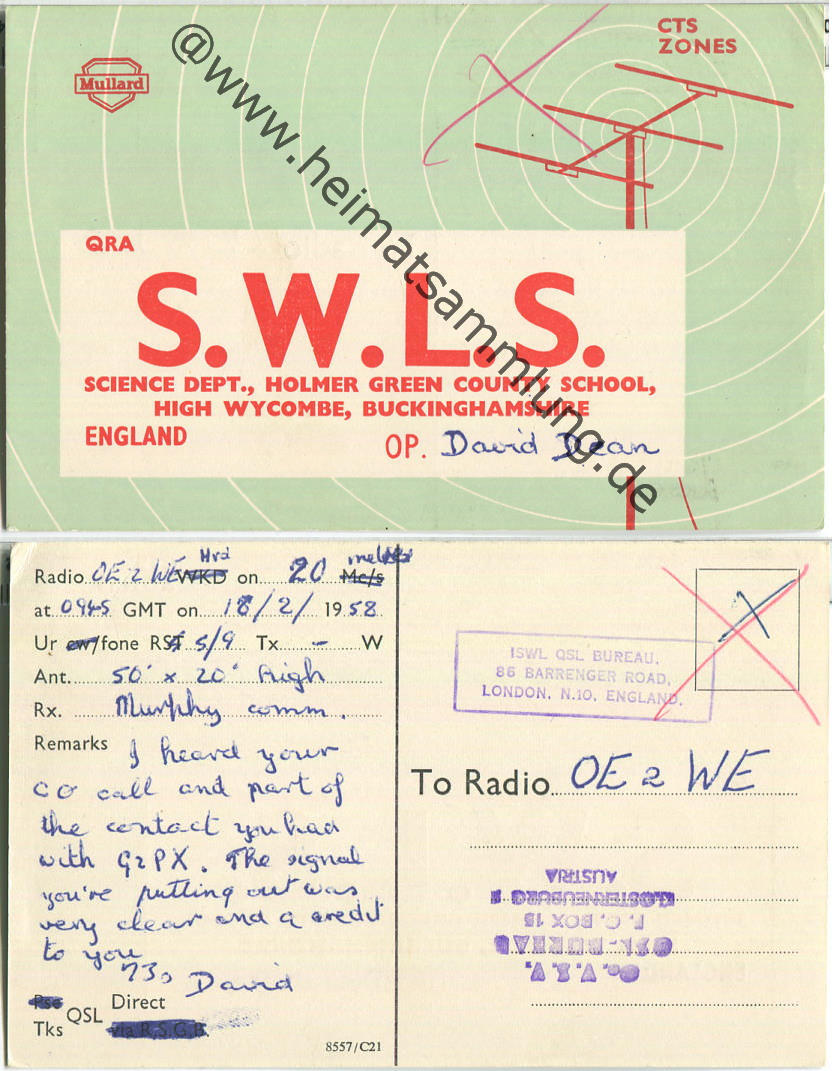 CTS
ZONES
Mullard
@www.heimatsammlung.de
QRA
S.W.L.S.
SCIENCE DEPT., HOLMER GREEN COUNTY SCHOOL,
HIGH WYCOMBE, BUCKINGHAMSHIRE
ENGLAND
OP. David Dean
Radio OE2WE WKD Hrd on 20 Mc/s metres
at 0945 GMT on 18/2/ 1958
Ur cw/fone RST 5/9 Tx. - W
Ant. 50' x 20' High
Rx. Murphy comm.
Remarks I heard your
CQ call and part of
the contact you had
with G2PX. The signal
you're putting out was
very clear and a credit
to you
73s David
Pse
Tks QSL Direct
via R.S.G.B.
8557/C21
ISWL QSL BUREAU,
86 BARRENGER ROAD,
LONDON, N.10, ENGLAND.
To Radio OE2WE
Oe. V. S. V.
QSL-BUREAU
P. O. BOX 15
KLOSTERNEUBURG 2
AUSTRIA